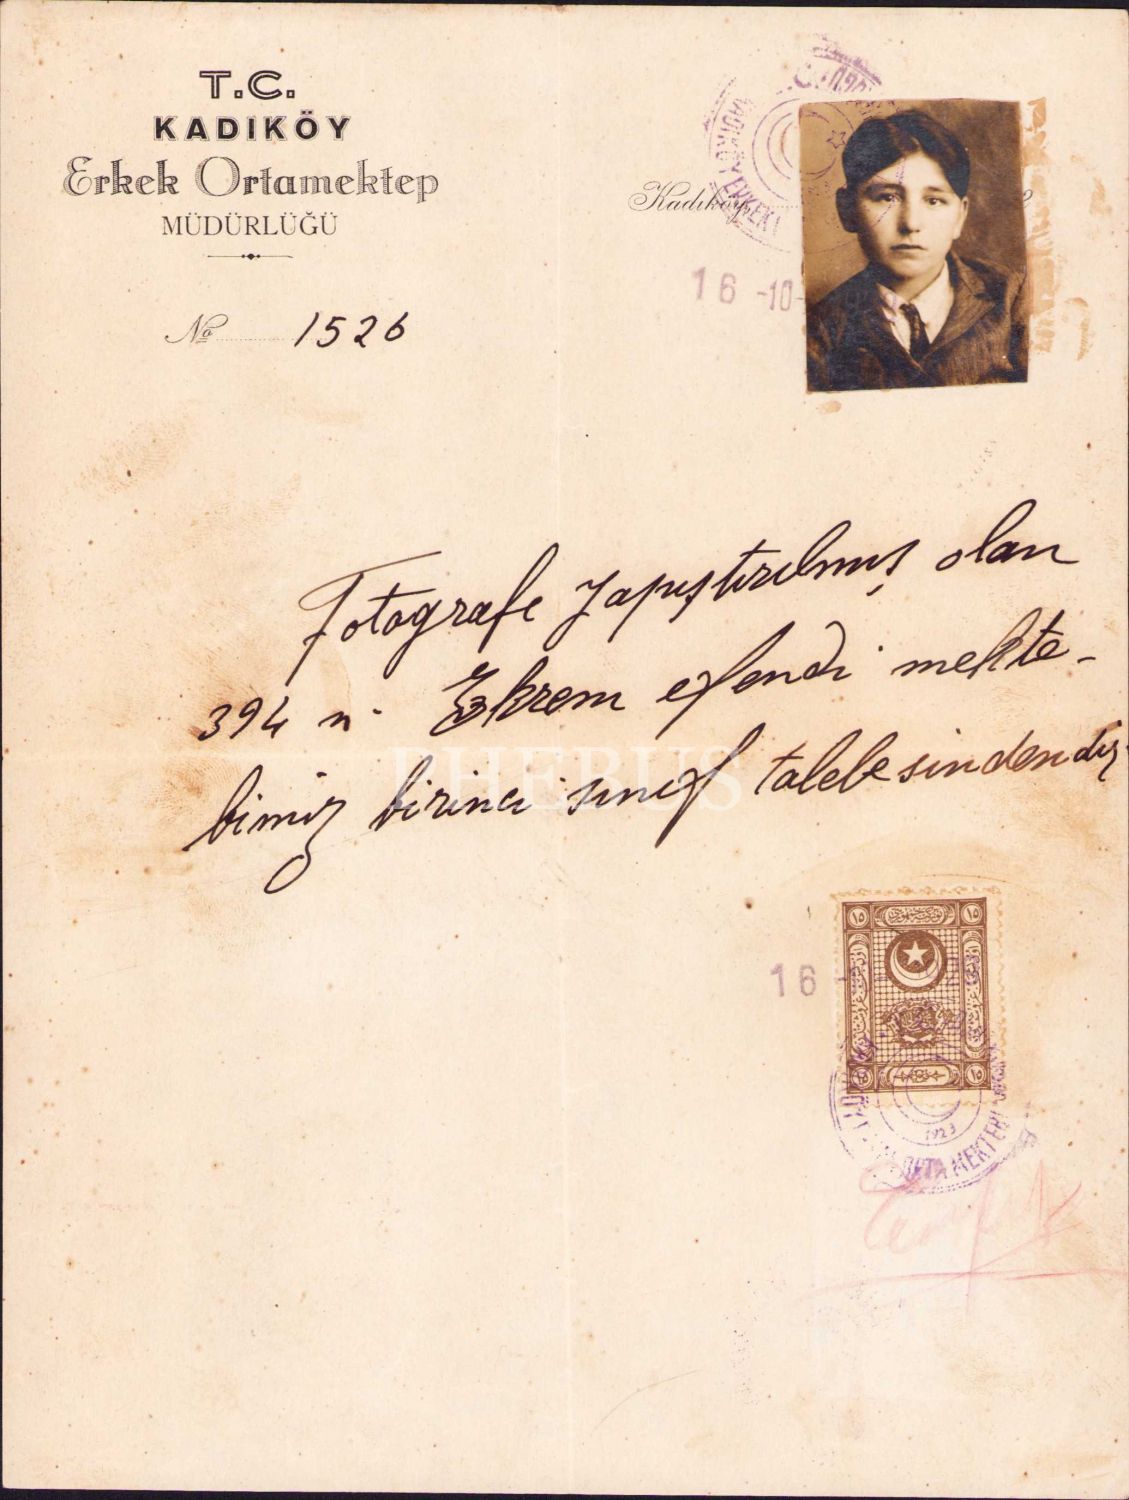 T.C.
KADIKÖY
Erkek Ortamektep
MÜDÜRLÜĞÜ
No 1526
Kadıköy
16 -10-
Fotografe yapıştırılmış olan
394 n. Ekrem efendi mekte-
bimiz birinci sınıf talebesindendir
PHEBUS
16
١٥ ١٥
١٥ ١٥
1923
ORTA MEKTEBİ